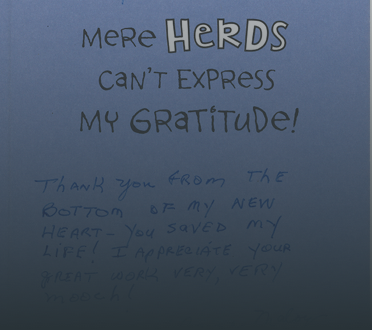 MeRe HeRDS
CaN'T EXPRESS
MY GRaTiTuDe!
Thank you from The
BOTTOM OF my NEW
HEART - YOU SAVED MY
LIFE! I APPRECIATE YOUR
GREAT WORK VERY, VERY